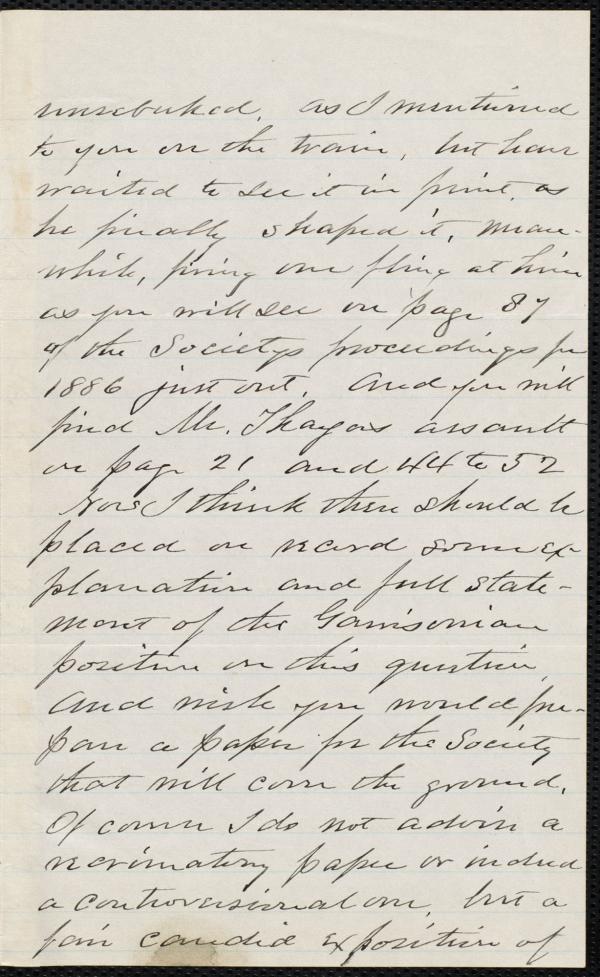 unrebuked, as I mentioned
to you on the train, but have
waited to see it in print, as
he finally shaped it, mean-
while, firing one fling at him
as you will see on page 87
of the Society's proceedings for
1886 just out. And you will
find Mr. Thayer's assault
on page 21 and 44 to 52
Now I think there should be
placed on record some ex-
planation and full state-
ment of the Garrisonian
position on this question,
And wish you would pre-
pare a paper for the Society
that will cover the ground.
Of course I do not advise a
recriminatory paper or indeed
a controversional one, but a
fair candid exposition of